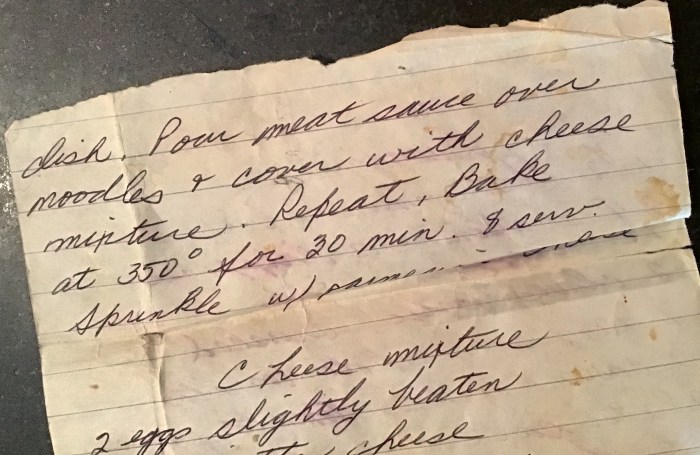 dish. Pour meat sauce over
noodles & cover with cheese
mixture. Repeat, Bake
at 350° for 30 min. 8 serv.
Sprinkle w/
Cheese mixture
2 eggs slightly beaten
cheese